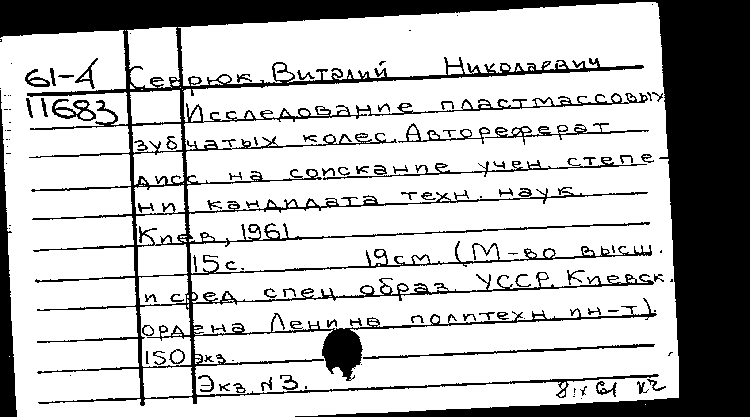 61-4 Севрюк, Виталий Николаевич
11683 Исследование пластмассовых
зубчатых колес. Автореферат
дисс. на соискание учен. степе-
ни кандидата техн. наук.
Киев, 1961.
15 с. 19 см. (М-во высш.
и сред. спец. образ. УССР. Киевск.
ордена Ленина политехн. ин-т).
150 экз.
Экз. №3.
8 IX 61